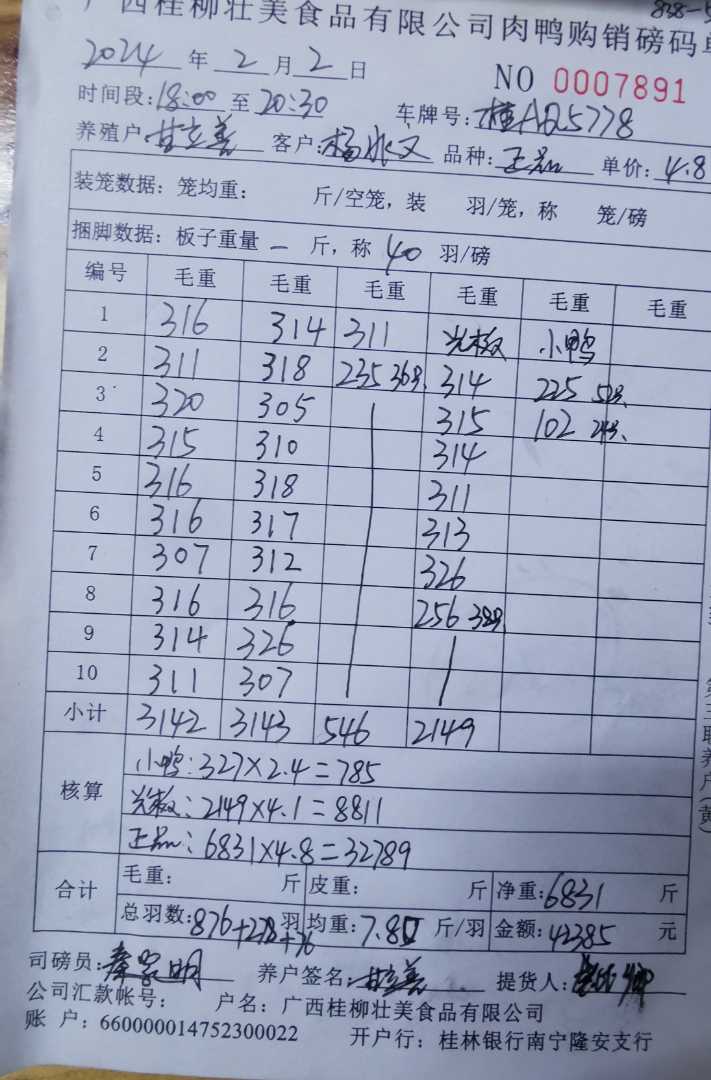 广西桂柳壮美食品有限公司肉鸭购销磅码单
2024 年 2 月 2 日 NO 0007891
时间段:18:00 至 20:30 车牌号:桂AQ5778
养殖户:甘立善 客户:杨水文 品种:正品 单价:4.8
装笼数据:笼均重: 斤/空笼,装 羽/笼,称 笼/磅
捆脚数据:板子重量 一 斤,称 40 羽/磅
编号 毛重 毛重 毛重 毛重 毛重 毛重
1 316 314 311 光板 小鸭
2 311 318 235 36只 314 225 52只
3 320 305 315 102 24只
4 315 310 314
5 316 318 311
6 316 317 313
7 307 312 326
8 316 316 256 38只
9 314 326
10 311 307
小计 3142 3143 546 2149
核算 小鸭:327×2.4=785
光板:2149×4.1=8811
正品:6831×4.8=32789
合计 毛重: 斤 皮重: 斤 净重:6831 斤
总羽数:876+278+76 羽 均重:7.80 斤/羽 金额:42385 元
司磅员: 养户签名:甘立善 提货人:
公司汇款帐号: 户名:广西桂柳壮美食品有限公司
账 户:660000014752300022 开户行:桂林银行南宁隆安支行
第三联养户(黄)